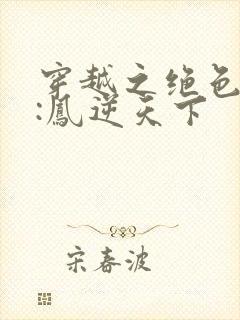 穿越之绝色
:鳳逆天下
宋春波